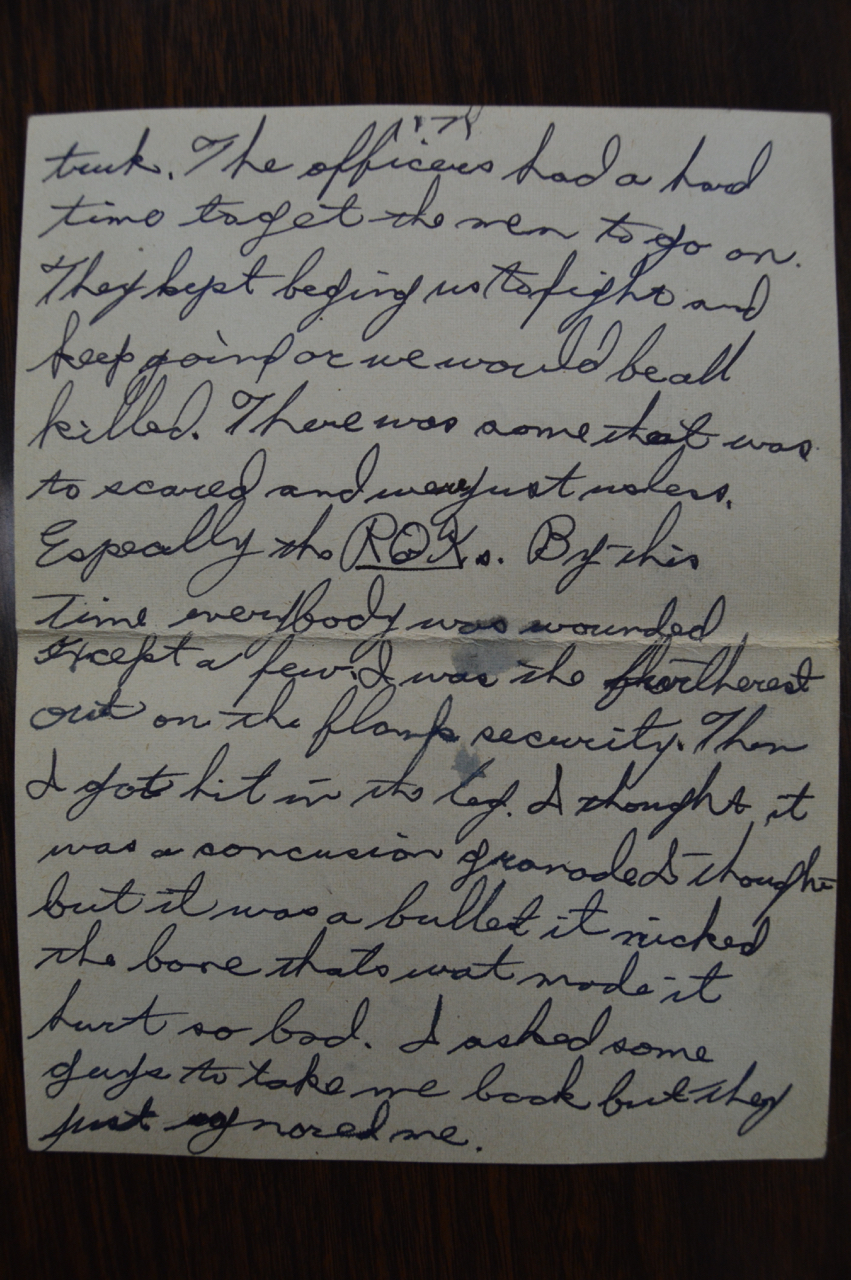 truck. The officers had a hard
time to get the men to go on.
They kept beging us to fight and
keep going or we would be all
killed. There was some that was
to scared and were just usless.
Especally the ROKs. By this
time everybody was wounded
except a few. I was the furtherest
out on the flank security. Then
I got hit in the leg. I thought it
was a concusion granade I thought
but it was a bullet it nicked
the bone thats wat made it
hurt so bad. I asked some
guys to take me back but they
just ignored me.